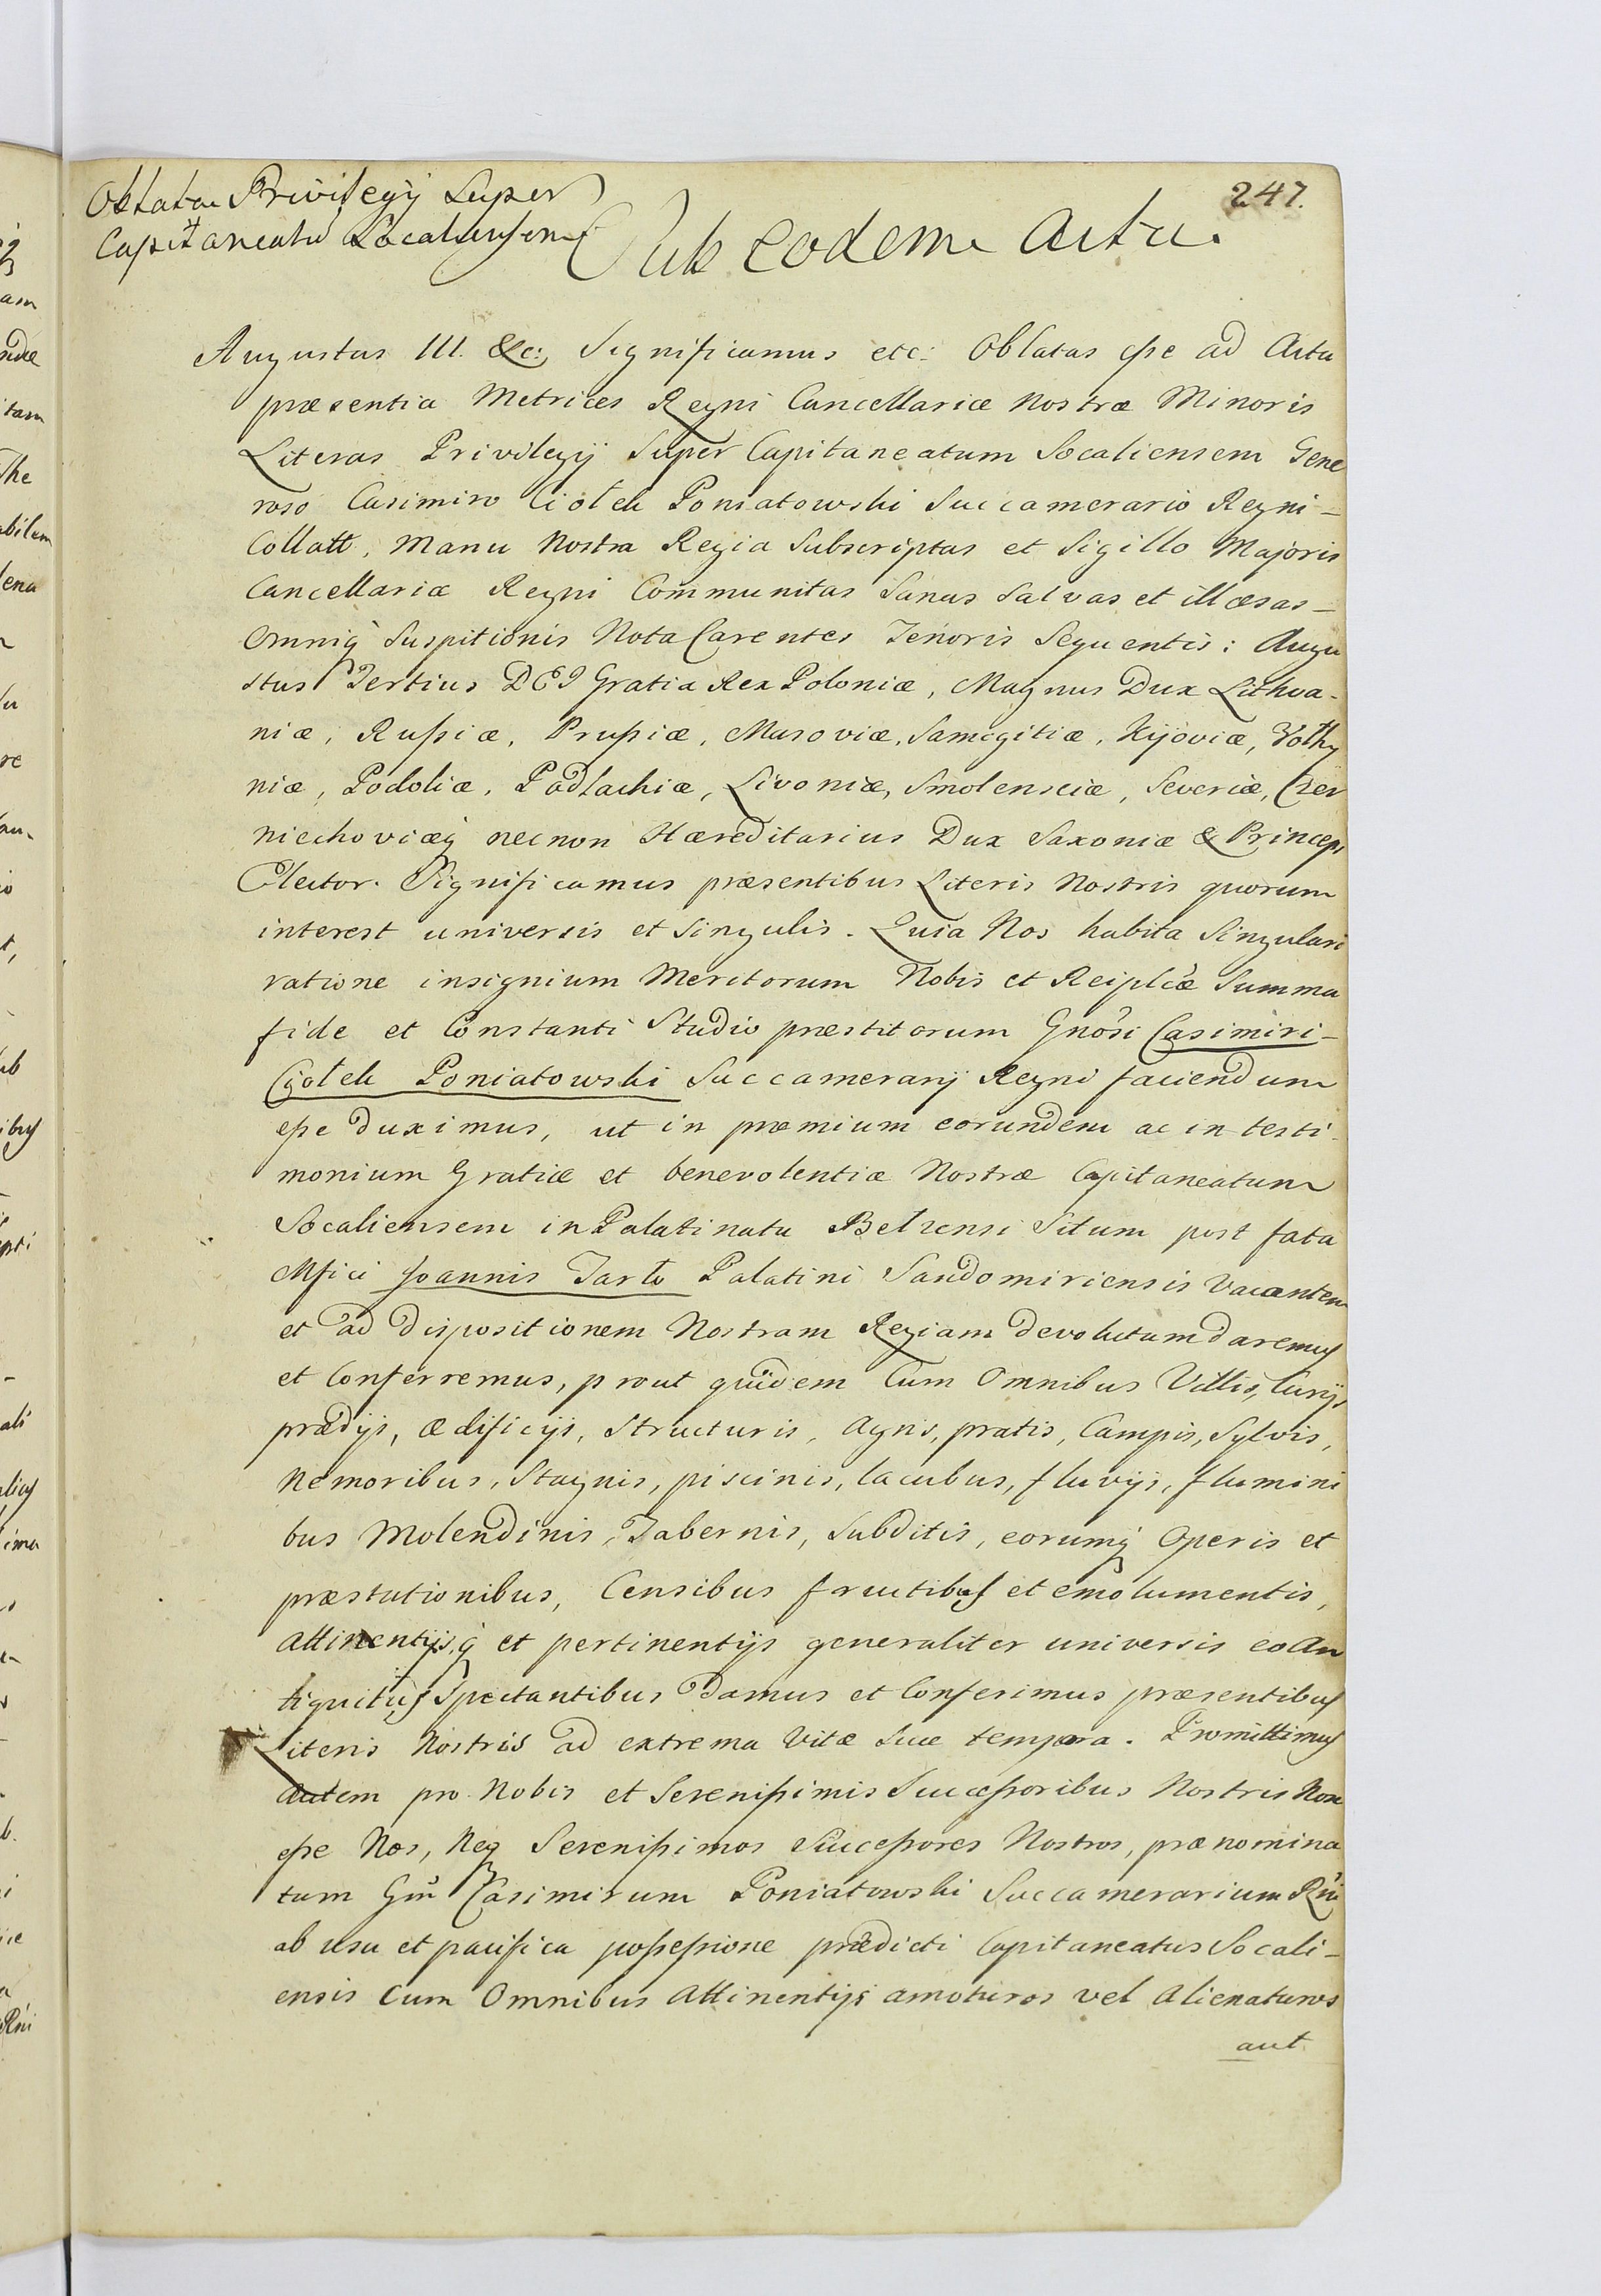 247.
Oblatæ Privilegÿ Super
Capitaneatũ Socaliensem
Sub eodem Actu.
Augustus III. &c: Significamus etc: Oblatas eſse ad Acta
præsentia Metrices Regni Cancellariæ Nostræ Minoris
Literas Privilegÿ Super Capitaneatum Socaliensem Gene
roso Casimiro Ciołek Poniatowski Succamerario Regni –
Collatt, Manu Nostra Regia Subscriptas et Sigillo Majoris
Cancellariæ Regni Communitas Sanas Salvas et illæsas –
Omniq̀ Suspitionis Nota Carentes Tenoris Sequentis: Augu
stus Tertius DEI Gratia Rex Poloniæ, Magnus Dux Lithua-
niæ, Ruſsiæ, Pruſsiæ, Masoviæ, Samogitiæ, Kijoviæ, Volhy
niæ, Podoliæ, Podlachiæ, Livoniæ, Smolensciæ, Severiæ, Czer
niechoviæq̀ necnon Hæreditarius Dux Saxoniæ & Princeps
Elector. Significamus præsentibus Literis Nostris quorum
interest universis et Singulis. Quia Nos habita Singulari
ratione insignium Meritorum Nobis et Reiplicæ Summa
fide et Constanti Studio præstitorum Gnosi Casimiri –
Cjołek Poniatowski Succamerarÿ Regni faciendum
eſse duximus, ut in præmium eorundem ac in testi-
monium Gratiæ et benevolentiæ Nostræ Capitaneatum
Socaliensem in Palatinatu Belzensi Situm post fata
Mfici Joannis Tarło Palatini Sandomiriensis Vacantem
et ad dispositionem Nostram Regiam devolutum daremus
et Conferremus, prout quidem Cum Omnibus Villis, Curÿs
prædÿs, ædificÿs, Structuris, Agris, pratis, Campis, Sylvis,
Nemoribus, Stagnis, piscinis, lacubus, fluvÿs, flumini
bus Molendinis, Tabernis, Subditis, eorumq̀ Operis et
præstationibus, Censibus fructibus et emolumentis,
Attinentÿsq̀ et pertinentÿs generaliter universis eo An
tiquitus Spectantibus Damus et Conferimus præsentibus
Literis Nostris ad extrema Vitæ Suæ tempora. Promittimus
Autem pro Nobis et Sereniſsimis Succeſsoribus Nostris Non
eſse Nos, Neq̀ Sereniſsimos Succeſsores Nostros, prænomina
tum Gm̃ Casimirum Poniatowski Succamerarium Rni
ab usu et pacifica poſseſsione prædicti Capitaneatus Socali –
ensis Cum Omnibus Attinentÿs amoturos vel Alienaturos
aut